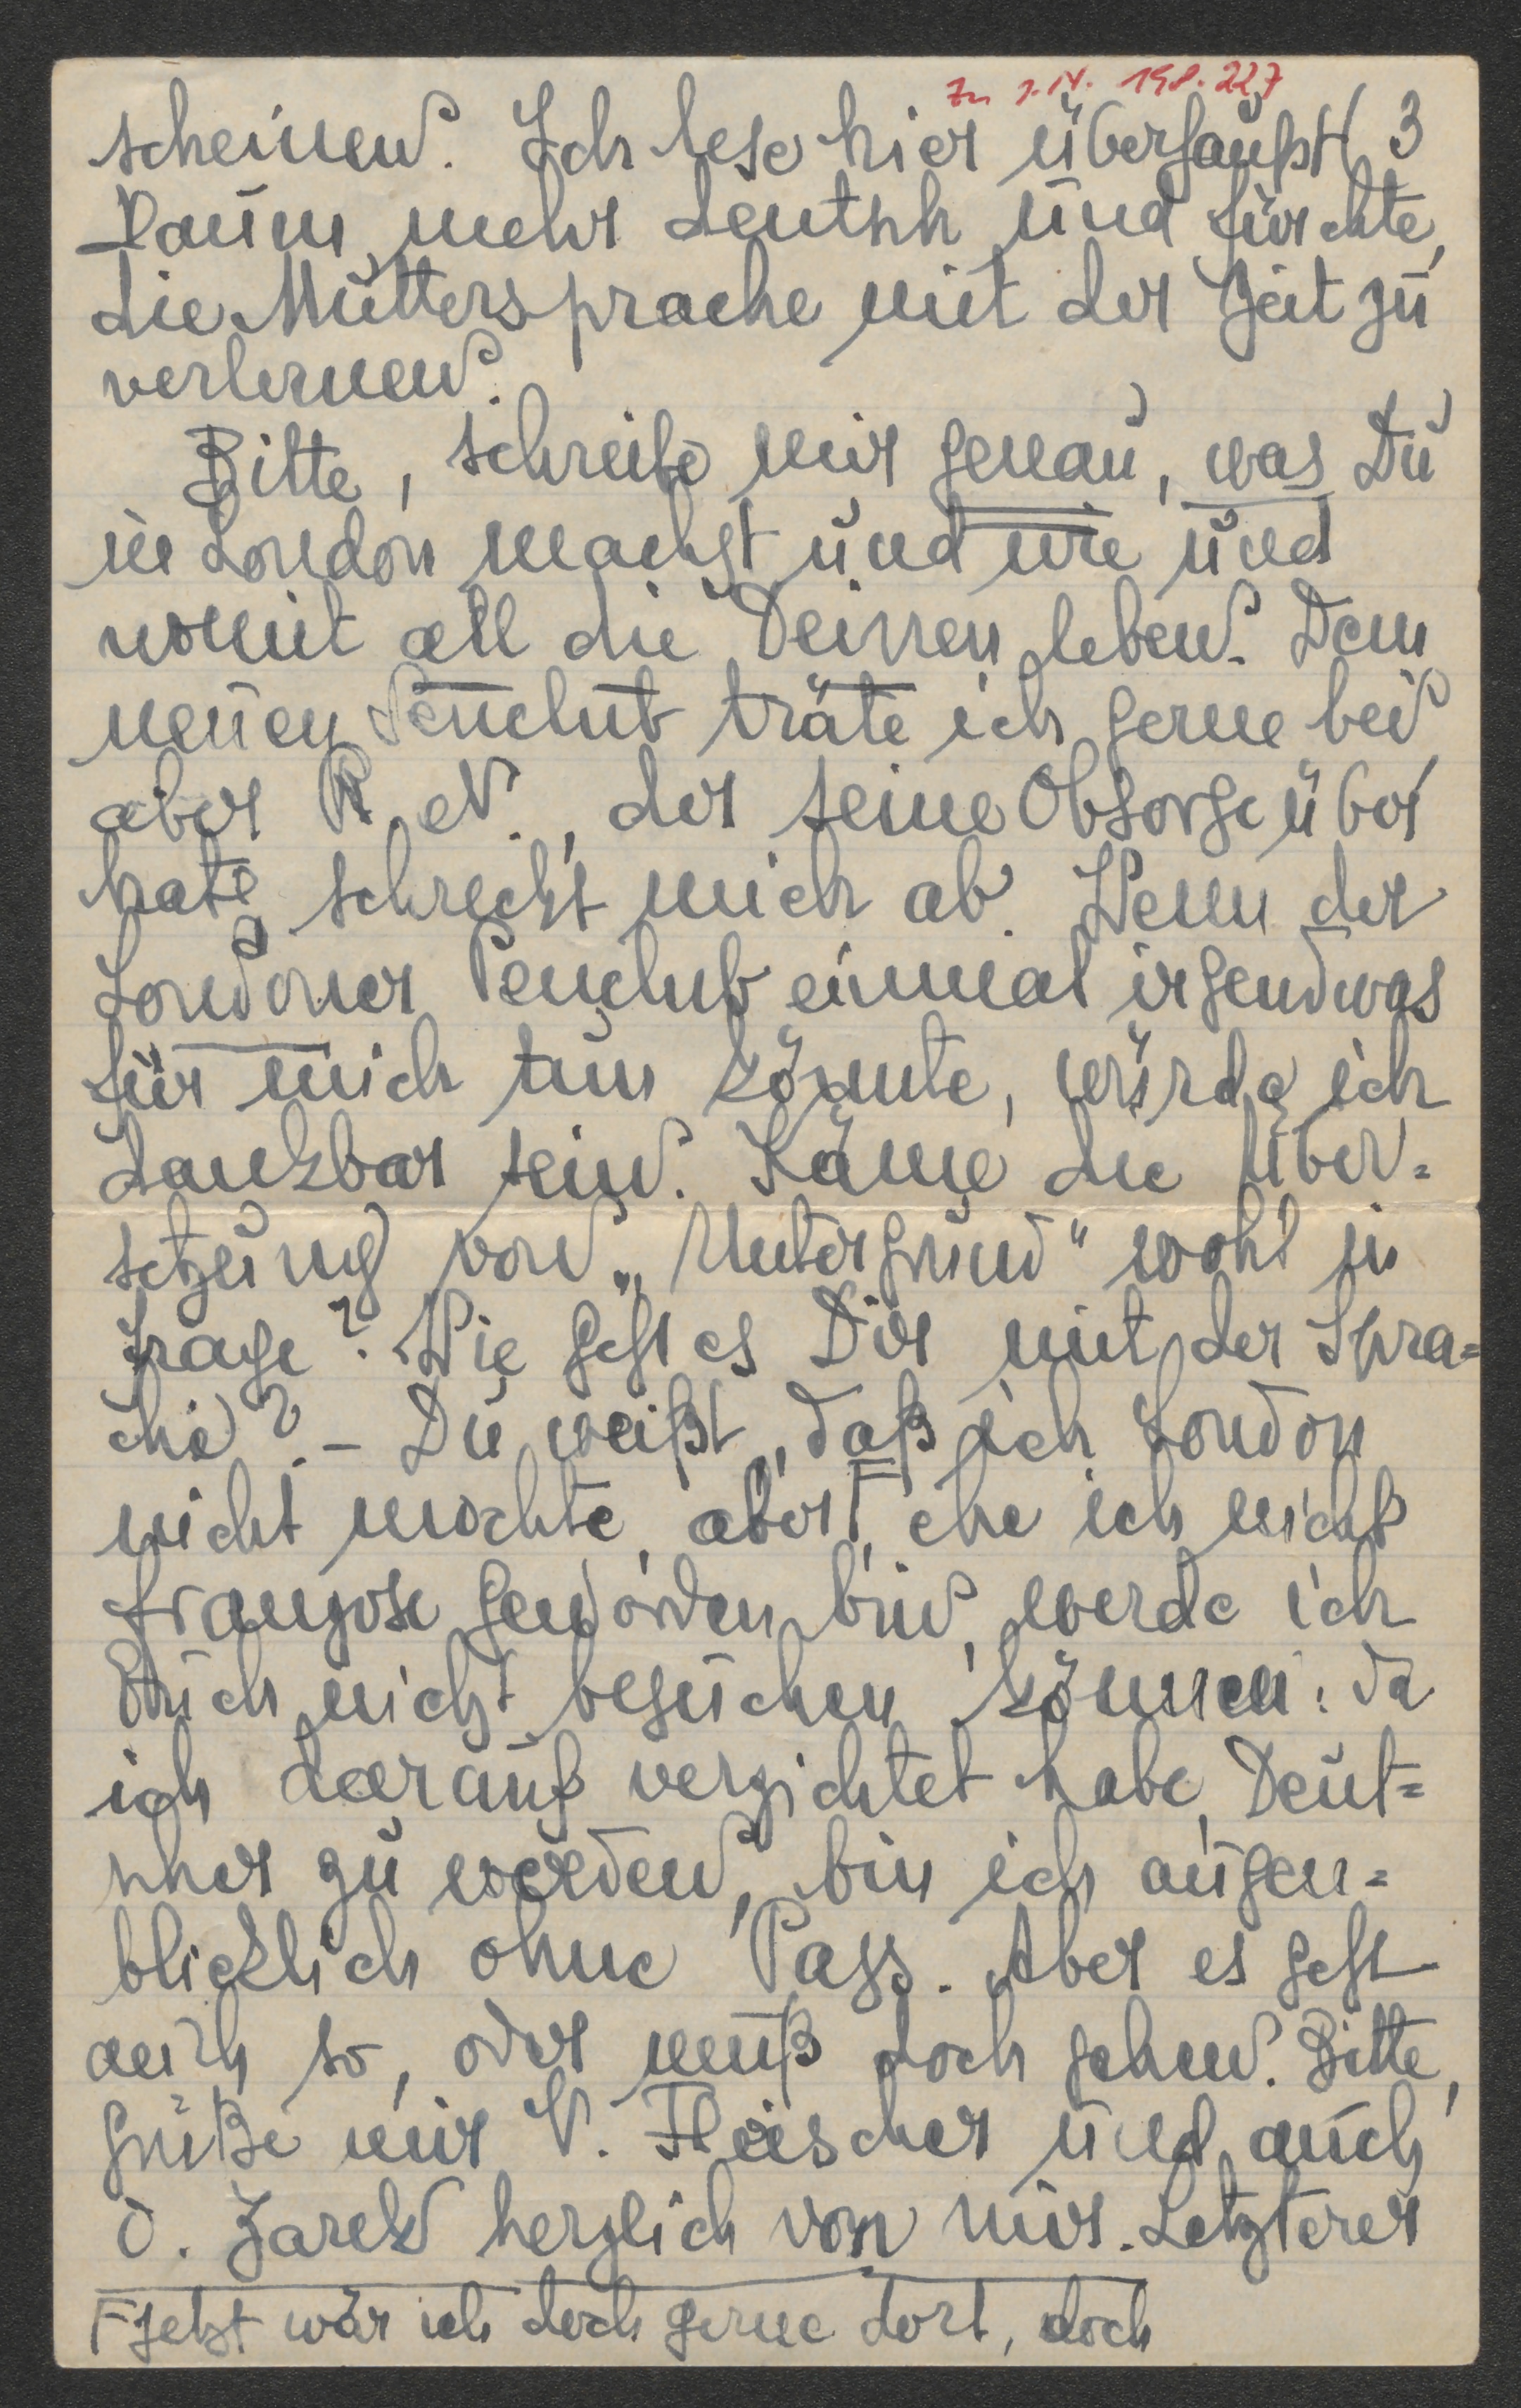 Zu I.N. 198.227
scheinen. Ich lese hier überhaupt 3
kaum mehr deutsch und fürchte,
die Muttersprache mit der Zeit zu
verlernen.
Bitte, schreibe mir genau, was Du
in London machst und wie und
womit all die Deinen leben. Dem
neuen Penclub träte ich gerne bei
aber R. N., der seine Obsorge über
hat, schreckt mich ab. Wenn der
Londoner Penclub einmal irgendwas
für mich tun könnte, würde ich
dankbar sein. Käme die Über=
setzung von „Untergrund" wohl in
Frage? Wie geht es Dir mit der Spra=
che? – Du weißt, daß ich London
nicht mochte, aber Γ, ehe ich nicht
Franzose geworden bin, werde ich
Euch nicht besuchen können: da
ich darauf verzichtet habe, Deut=
scher zu werden, bin ich augen=
blicklich ohne Pass. Aber es geht
auch so, oder muß doch gehen. Bitte,
grüße mir V. Fleischer und auch
O. Zarek herzlich von mir. Letzterer
Γ jetzt wär ich doch gerne dort, doch